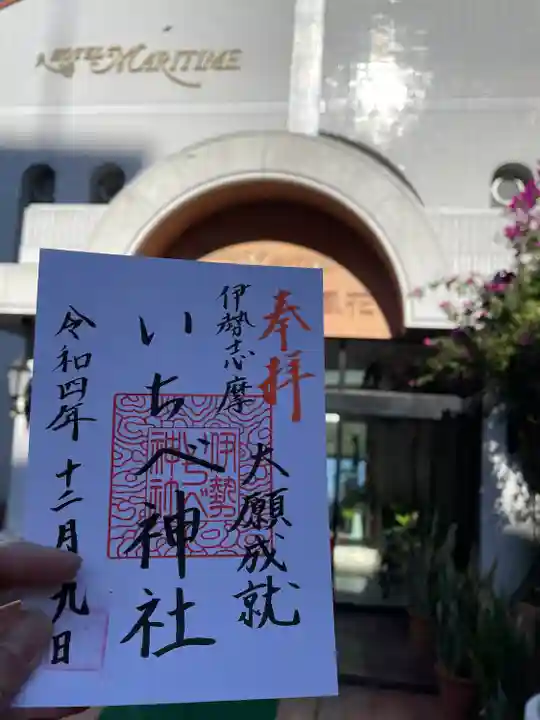 HOTEL MARITIME
奉拝
伊勢志摩
大願成就
いちべ神社
伊勢
いちべ
神社
令和四年 十二月 九日